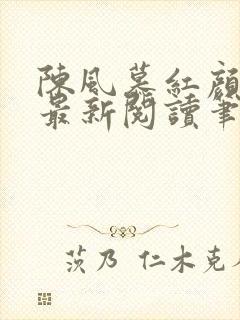 陳風暮紅顏
最新閱讀筆
茨乃 仁木克